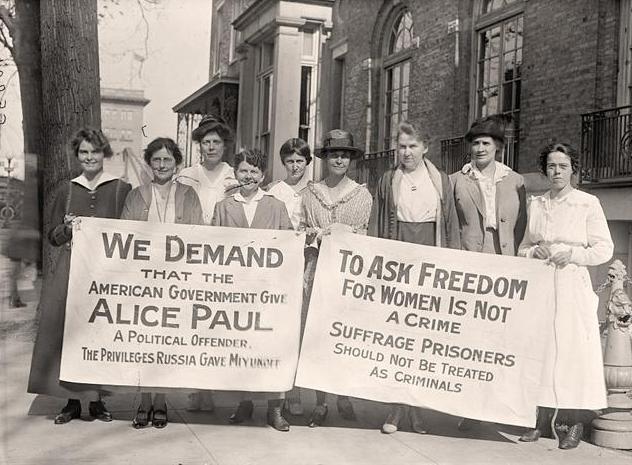 WE DEMAND
THAT THE
AMERICAN GOVERNMENT GIVE
ALICE PAUL
A POLITICAL OFFENDER,
THE PRIVILEGES RUSSIA GAVE MIYUNOFF
TO ASK FREEDOM
FOR WOMEN IS NOT
A CRIME
SUFFRAGE PRISONERS
SHOULD NOT BE TREATED
AS CRIMINALS